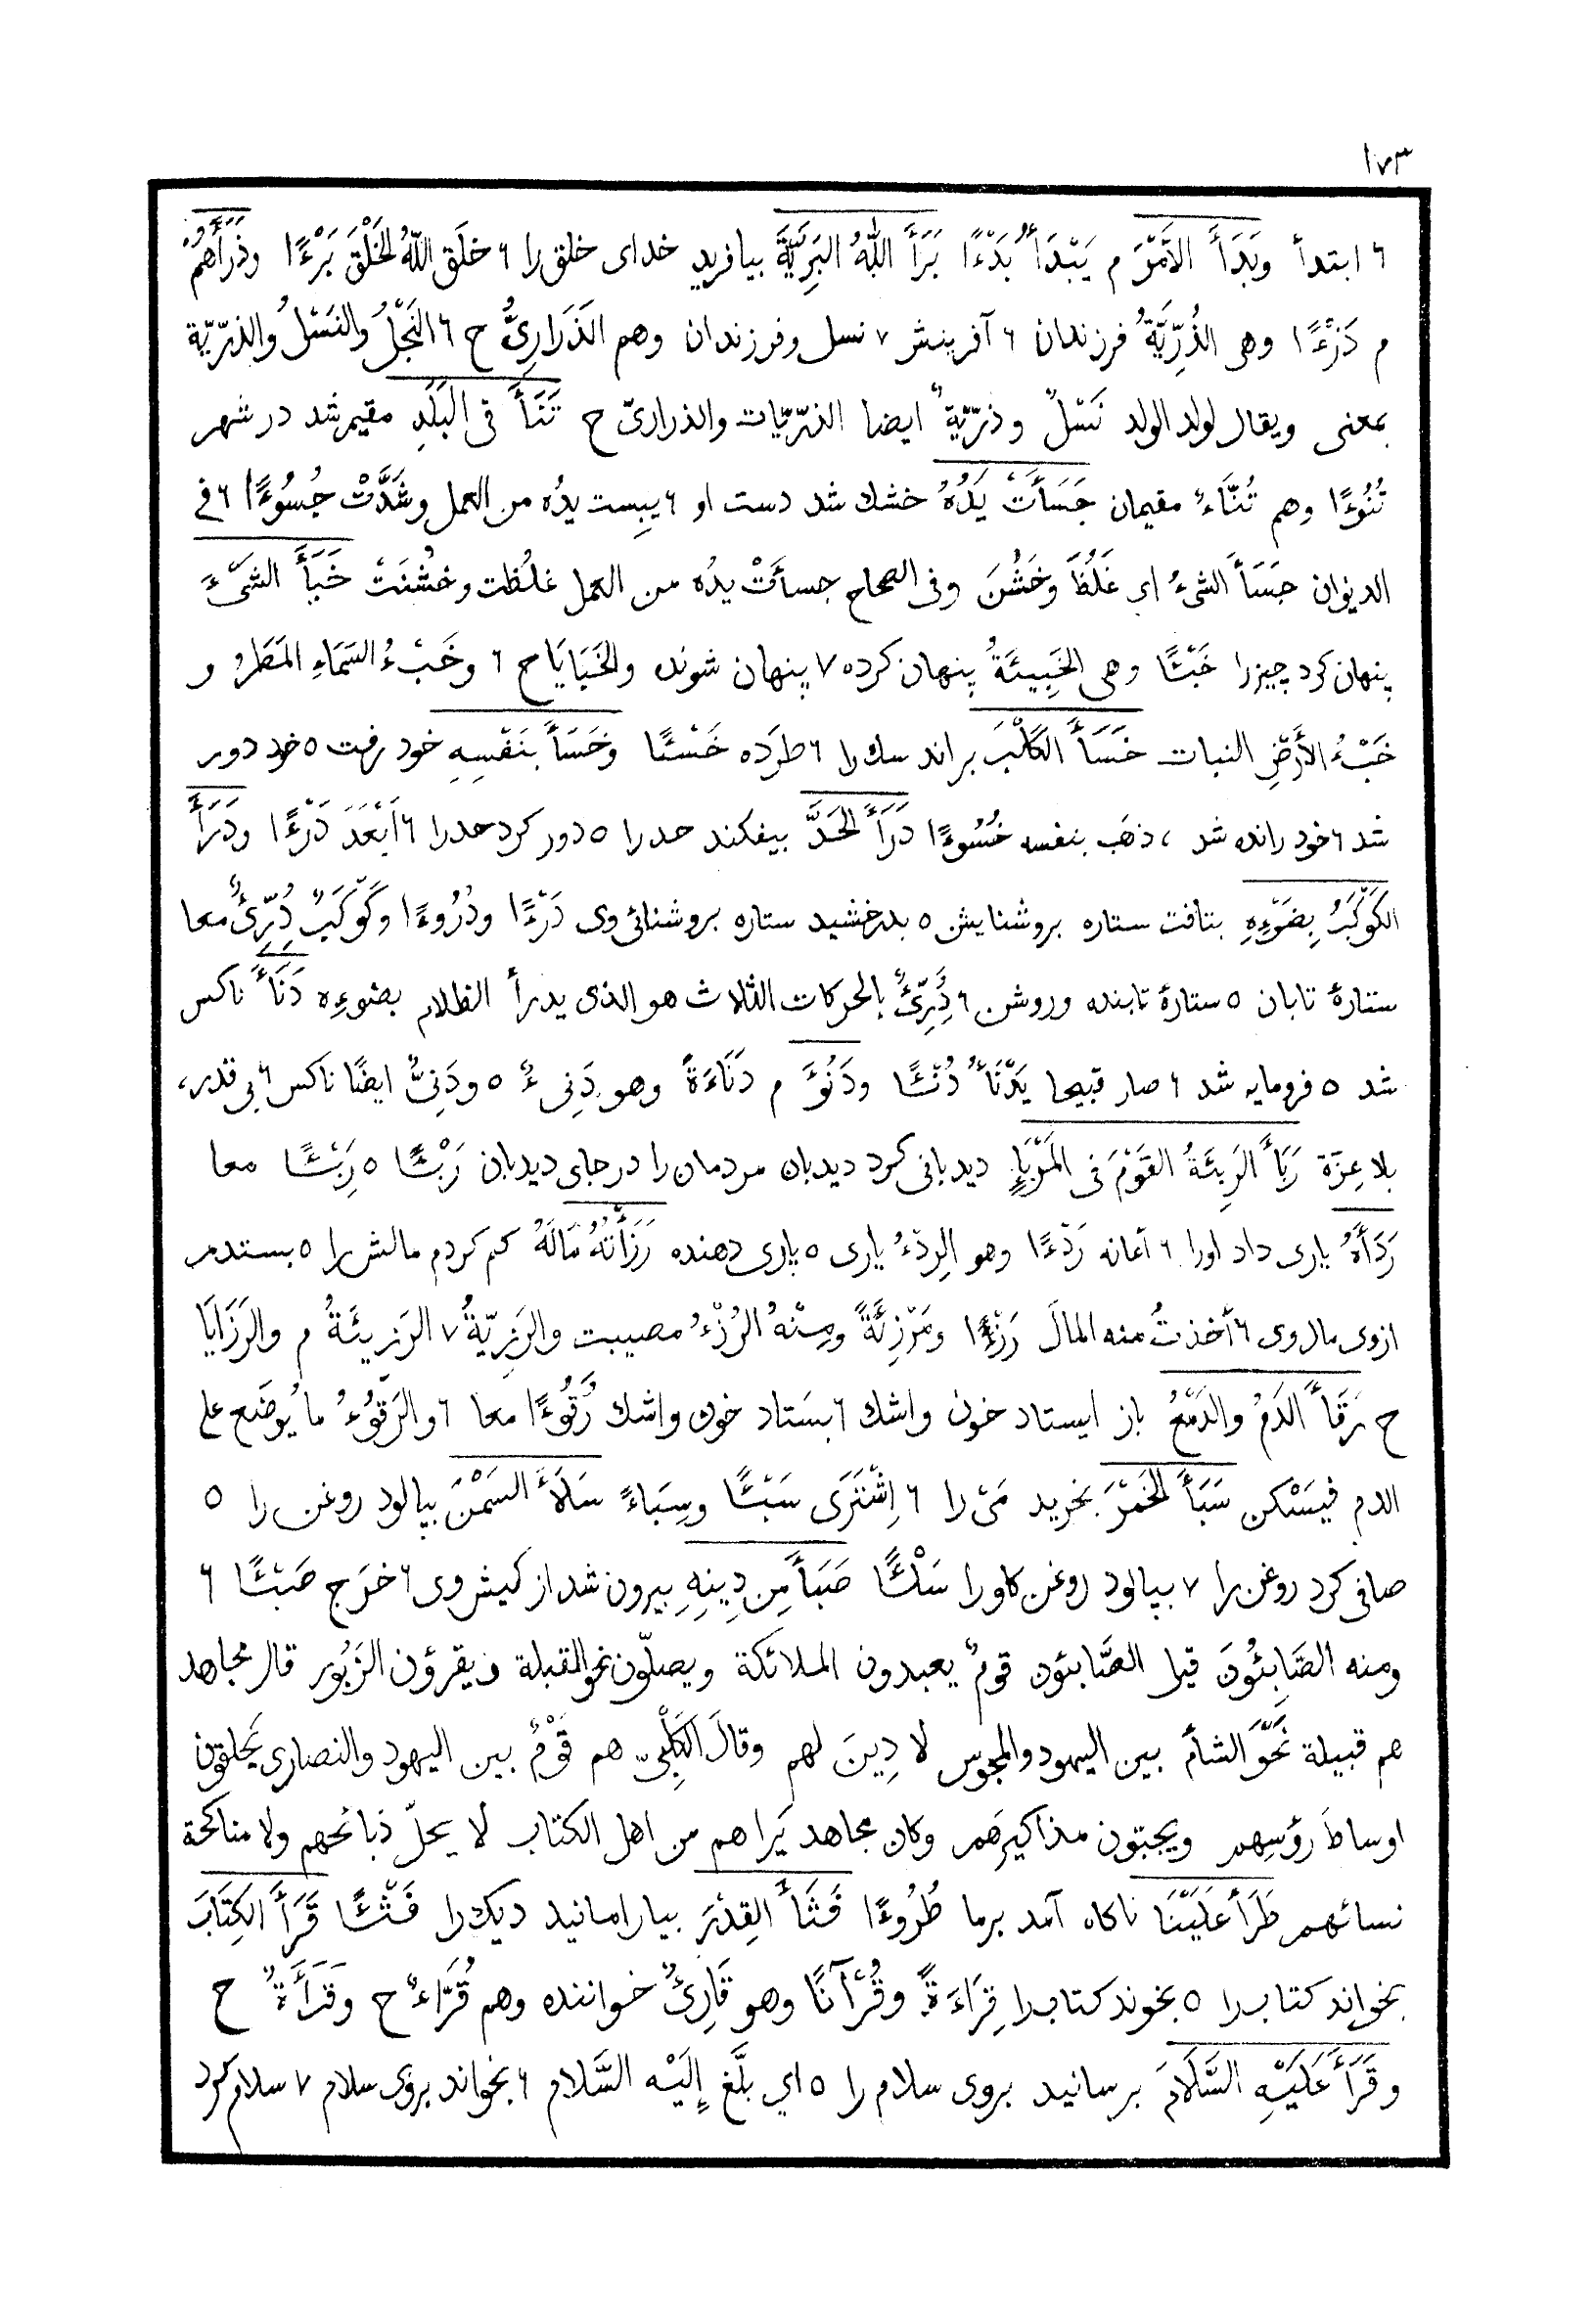 ١٧٣
٦ ابتدأ وَبَدَأَ الأَمْرَ م يَبْدَأُ بَدْءًا بَرَأَ اللّٰهُ البَرِيَّةَ بيافريد خداى خلق را ٦ خلَق اللّٰهُ الخَلْقَ بَرْءًا وذَرَأَهُمْ
م ذَرْءًا وهى الذُرِّيَّةُ فرزندان ٦ آفرينش ٧ نسل وفرزندان وهم الذَرَارِىُّ ح ٦ النَجْلُ والنَسْلُ والذرّيّة
بمعنى ويقال لولد الولد نَسْلٌ وذرّيّةٌ ايضا الذرّيّات والذرارىّ ح تَنَأَ فى البَلَدِ مقيم شد در شهر
تُنُوءًا وهم تُنَّاءٌ مقيمان جَسَأَتْ يَدُهُ خشك شد دست او ٦ يبِست يدُه من العمل وشَدَّتْ جُسُوءًا ٦ فى
الديوان جَسَأَ الشىءُ اى غَلُظَ وخَشُنَ وفى الصحاح جسأَتْ يدُه من العمل غلُظت وخشُنَتْ خَبَأَ الشَىْءَ
پنهان كرد چيزرا خَبْئًا وهى الخَبِيئَةُ پنهان كرده ٧ پنهان شونده والخَبَايَا ح ٦ وخَبْءُ السَمَاءِ المَطَرُ و
خَبْءُ الأَرْضِ النبات خَسَأَ الكَلْبَ براند سك را ٦ طرَده خَسْئًا وخَسَأَ بنَفْسِهِ خود رفت ٥ خود دور
شد ٦ خود رانده شد ، ذهَب بنفسه خُسُوءًا دَرَأَ الحَدَّ بيفكند حدرا ٥ دور كرد حدرا ٦ أَبْعَدَ دَرْءًا ودَرَأَ
الكَوْكَبُ بِضَوْءِهِ بتافت ستاره بروشنايش ٥ بدرخشيد ستاره بروشنائى وى دَرْءًا ودُرُوءًا وكَوْكَبٌ دُرِّىءٌ معا
ستارهٔ تابان ٥ ستارهٔ تابنده وروشن ٦ دُرِّىءٌ بالحركات الثلاث هو الذى يدرأ الظلام بضوءِه دَنَأَ ناكس
شد ٥ فرومايه شد ٦ صار قبيحا يَدْنَأُ دُنْئًا ودَنُؤَ م دَنَاءَةً وهو دَنِىءٌ ٥ ودَنِىٌّ ايضًا ناكس ٦ بى قدر،
بلا عِزّة رَبَأَ الرَبِئَةُ القَوْمَ فى المَرْبَإِ ديدبانى كرد ديدبان مردمان را در جاى ديدبان رَبْئًا ٥ رِبْئًا معا
رَدَأَهُ يارى داد اورا ٦ أعانه رَدْءًا وهو الرِدْءُ يارى ٥ يارى دهنده رَزَأْتُهُ مَالَهُ كم كردم مالش را ٥ بستدم
ازوى مال وى ٦ أخذتُ منه المالَ رَزْءًا ومَرْزِئَةً ومِنْهُ الرُزْءُ مصيبت والرَزِيّةُ ٧ الرَزِيئَةُ م والرَزَايَا
ح رَقَأَ الدَمُ والدَمْعُ باز ايستاد خون واشك ٦ بستاد خون واشك رُقُوءًا معا ٦ والرَقُوءُ ما يُوضَع على
الدم فيَسْكن سَبَأَ الخَمْرَ بخريد مَىْ را ٦ اِشْتَرَى سَبْئًا وسِبَاءً سَلَأَ السَمْنَ بپالود روغن را ٥
صافى كرد روغن را ٧ بپالود روغن كاو را سَلْئًا صَبَأَ مِن دِينِهِ بيرون شد از كيش وى ٦ خرَج صَبْئًا ٦
ومنه الصَّابِئُونَ قيل الصَّابئون قومٌ يعبدون الملائكة ويصلّون نحو القبلة ويقرؤن الزَبُور قال مجاهد
هم قبيلة نَحْوَ الشأم بين اليهود والمجوس لا دِينَ لهم وقالَ الكَلْبِىّ هم قَوْمٌ بين اليهود والنصارى يَحلقون
اوساطَ رؤسِهم ويجبّون مذاكيرَهم وكان مجاهد يَراهم من اهل الكتاب لا يحلّ ذبائحهم ولا مناكحة
نسائهم طَرَأَ عَلَيْنَا ناكاه آمد برما طُرُوءًا فَثَأَ القِدْرَ بيارامانيد ديك را فَثْئًا قَرَأَ الكِتَابَ
بخواند كتاب را ٥ بخوند كتاب را قِرَاءَةً وقُرْآنًا وهو قَارِئٌ خواننده وهم قُرَّاءٌ ح وقَرَأَةٌ ح
وقَرَأَ عَلَيْهِ السَّلَامَ برسانيد بروى سلام را ٥ اي بلَّغ إِلَيْه السَّلام ٦ بخواند بروى سلام ٧ سلام كرد